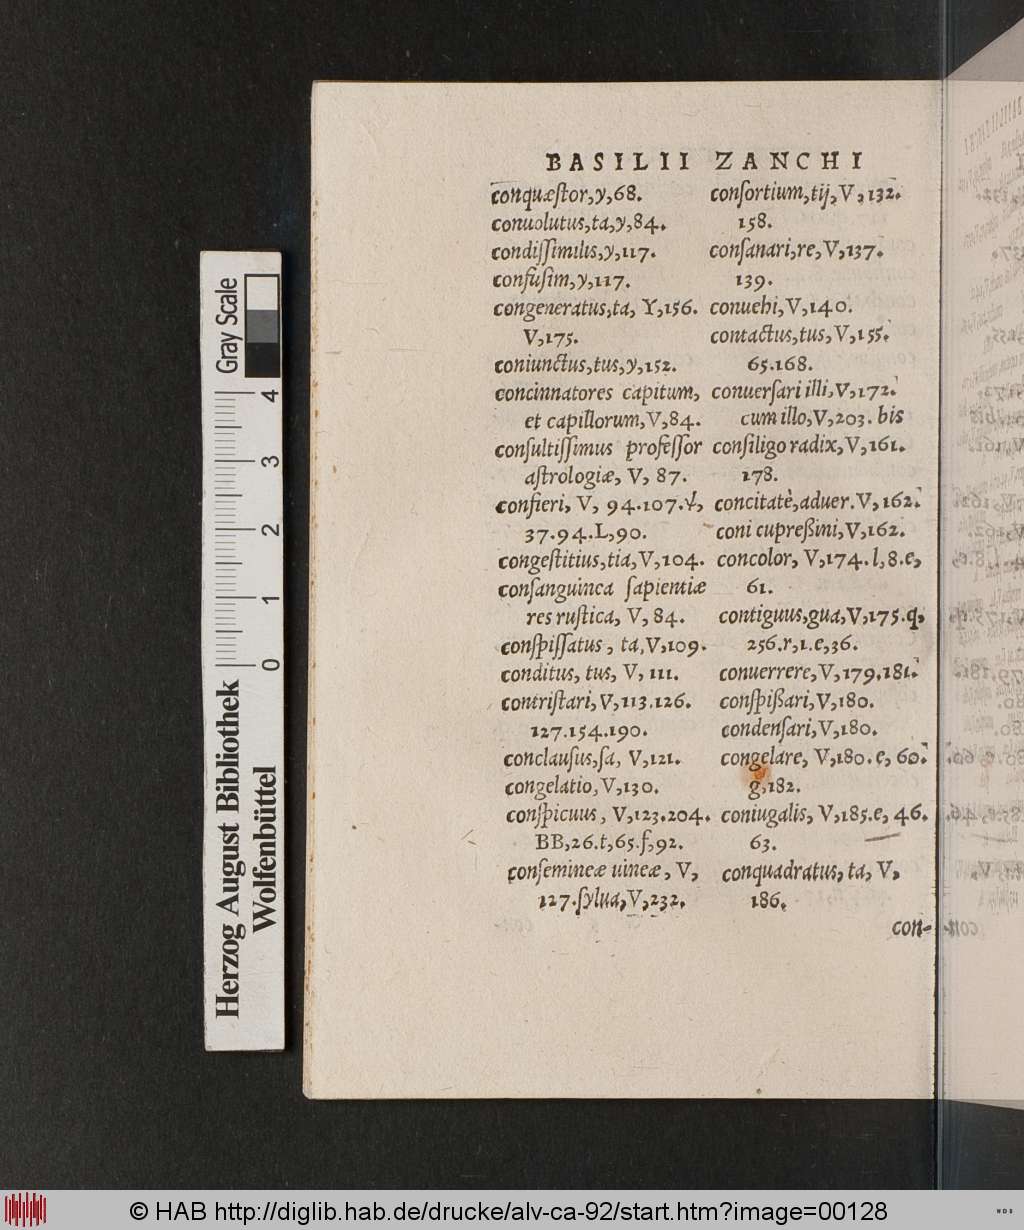 BASILII ZANCHI
conquæſtor,y,68.
conuolutus,ta,y,84.
condiſſimilis,y,117.
confuſim,y,117.
congeneratus,ta, Y,156.
V,175.
coniunctus,tus,y,152.
concinnatores capitum,
et capillorum,V,84.
conſultiſſimus profeſſor
aſtrologiæ, V, 87.
confieri, V, 94.107.
37.94.L,90.
congeſtitius,tia,V,104.
conſanguinea ſapientiæ
res ruſtica, V, 84.
conſpiſſatus, ta,V,109.
conditus, tus, V, 111.
contriſtari,V,113.126.
127.154.190.
conclauſus,ſa, V,121.
congelatio,V,130.
conſpicuus, V,123.204.
BB,26.t,65.f,92.
conſemineæ uineæ, V,
127.ſylua,V,232.
conſortium,tij,V,132.
158.
conſanari,re,V,137.
139.
conuehi,V,140.
contactus,tus,V,155.
65.168.
conuerſari illi,V,172.
cum illo,V,203. bis
conſiligo radix,V,161.
178.
concitatè,aduer.V,162.
coni cupreßini,V,162.
concolor, V,174.l,8.e,
61.
contiguus,gua,V,175.q,
256.r,1.e,36.
conuerrere,V,179.181.
conſpißari,V,180.
condenſari,V,180.
congelare, V,180.e, 60.
g,182.
coniugalis, V,185.e, 46.
63.
conquadratus, ta, V,
186.
con-
Gray Scale
0 1 2 3 4
Herzog August Bibliothek
Wolfenbüttel
© HAB http://diglib.hab.de/drucke/alv-ca-92/start.htm?image=00128